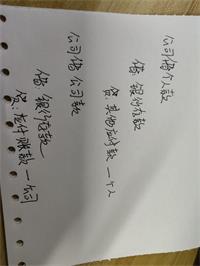 公司借个人款
借:银行存款
贷:其他应付款—个人
公司借公司款
借:银行存款
贷:应付账款—公司